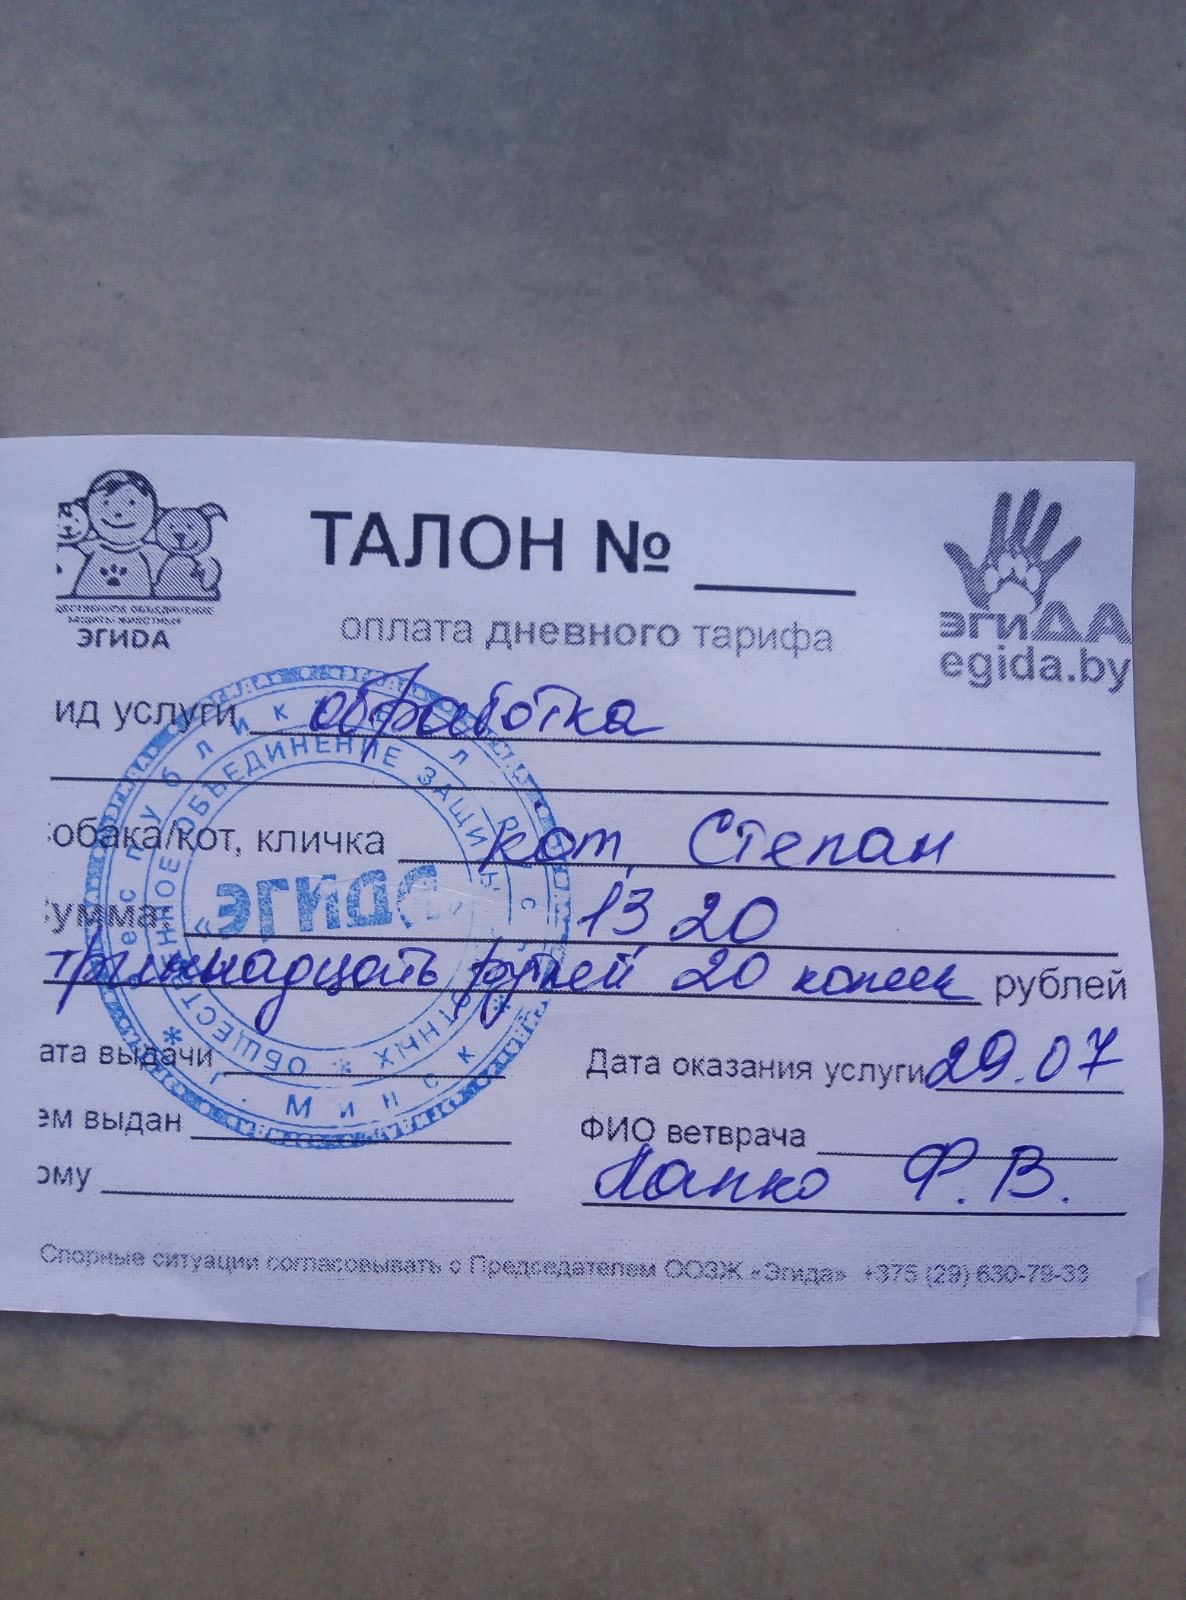 ТАЛОН №
оплата дневного тарифа
ЩЕСТВЕННОЕ ОБЪЕДИНЕНИЕ
ЗАЩИТЫ ЖИВОТНЫХ
ЭГИDА
эгиДА
egida.by
ид услуги обработка
обака/кот, кличка кот, Степан
умма: 13, 20
триннадцать рублей 20 копеек рублей
ата выдачи
ем выдан
ому
Дата оказания услуги 29.07
ФИО ветврача
Ф. В.
Спорные ситуации согласовывать с Председателем ООЗЖ «Эгида» +375 (29) 630-79-33
ОБЩЕСТВЕННОЕ ОБЪЕДИНЕНИЕ ЗАЩИТЫ
ЭГИДА
г. Минск